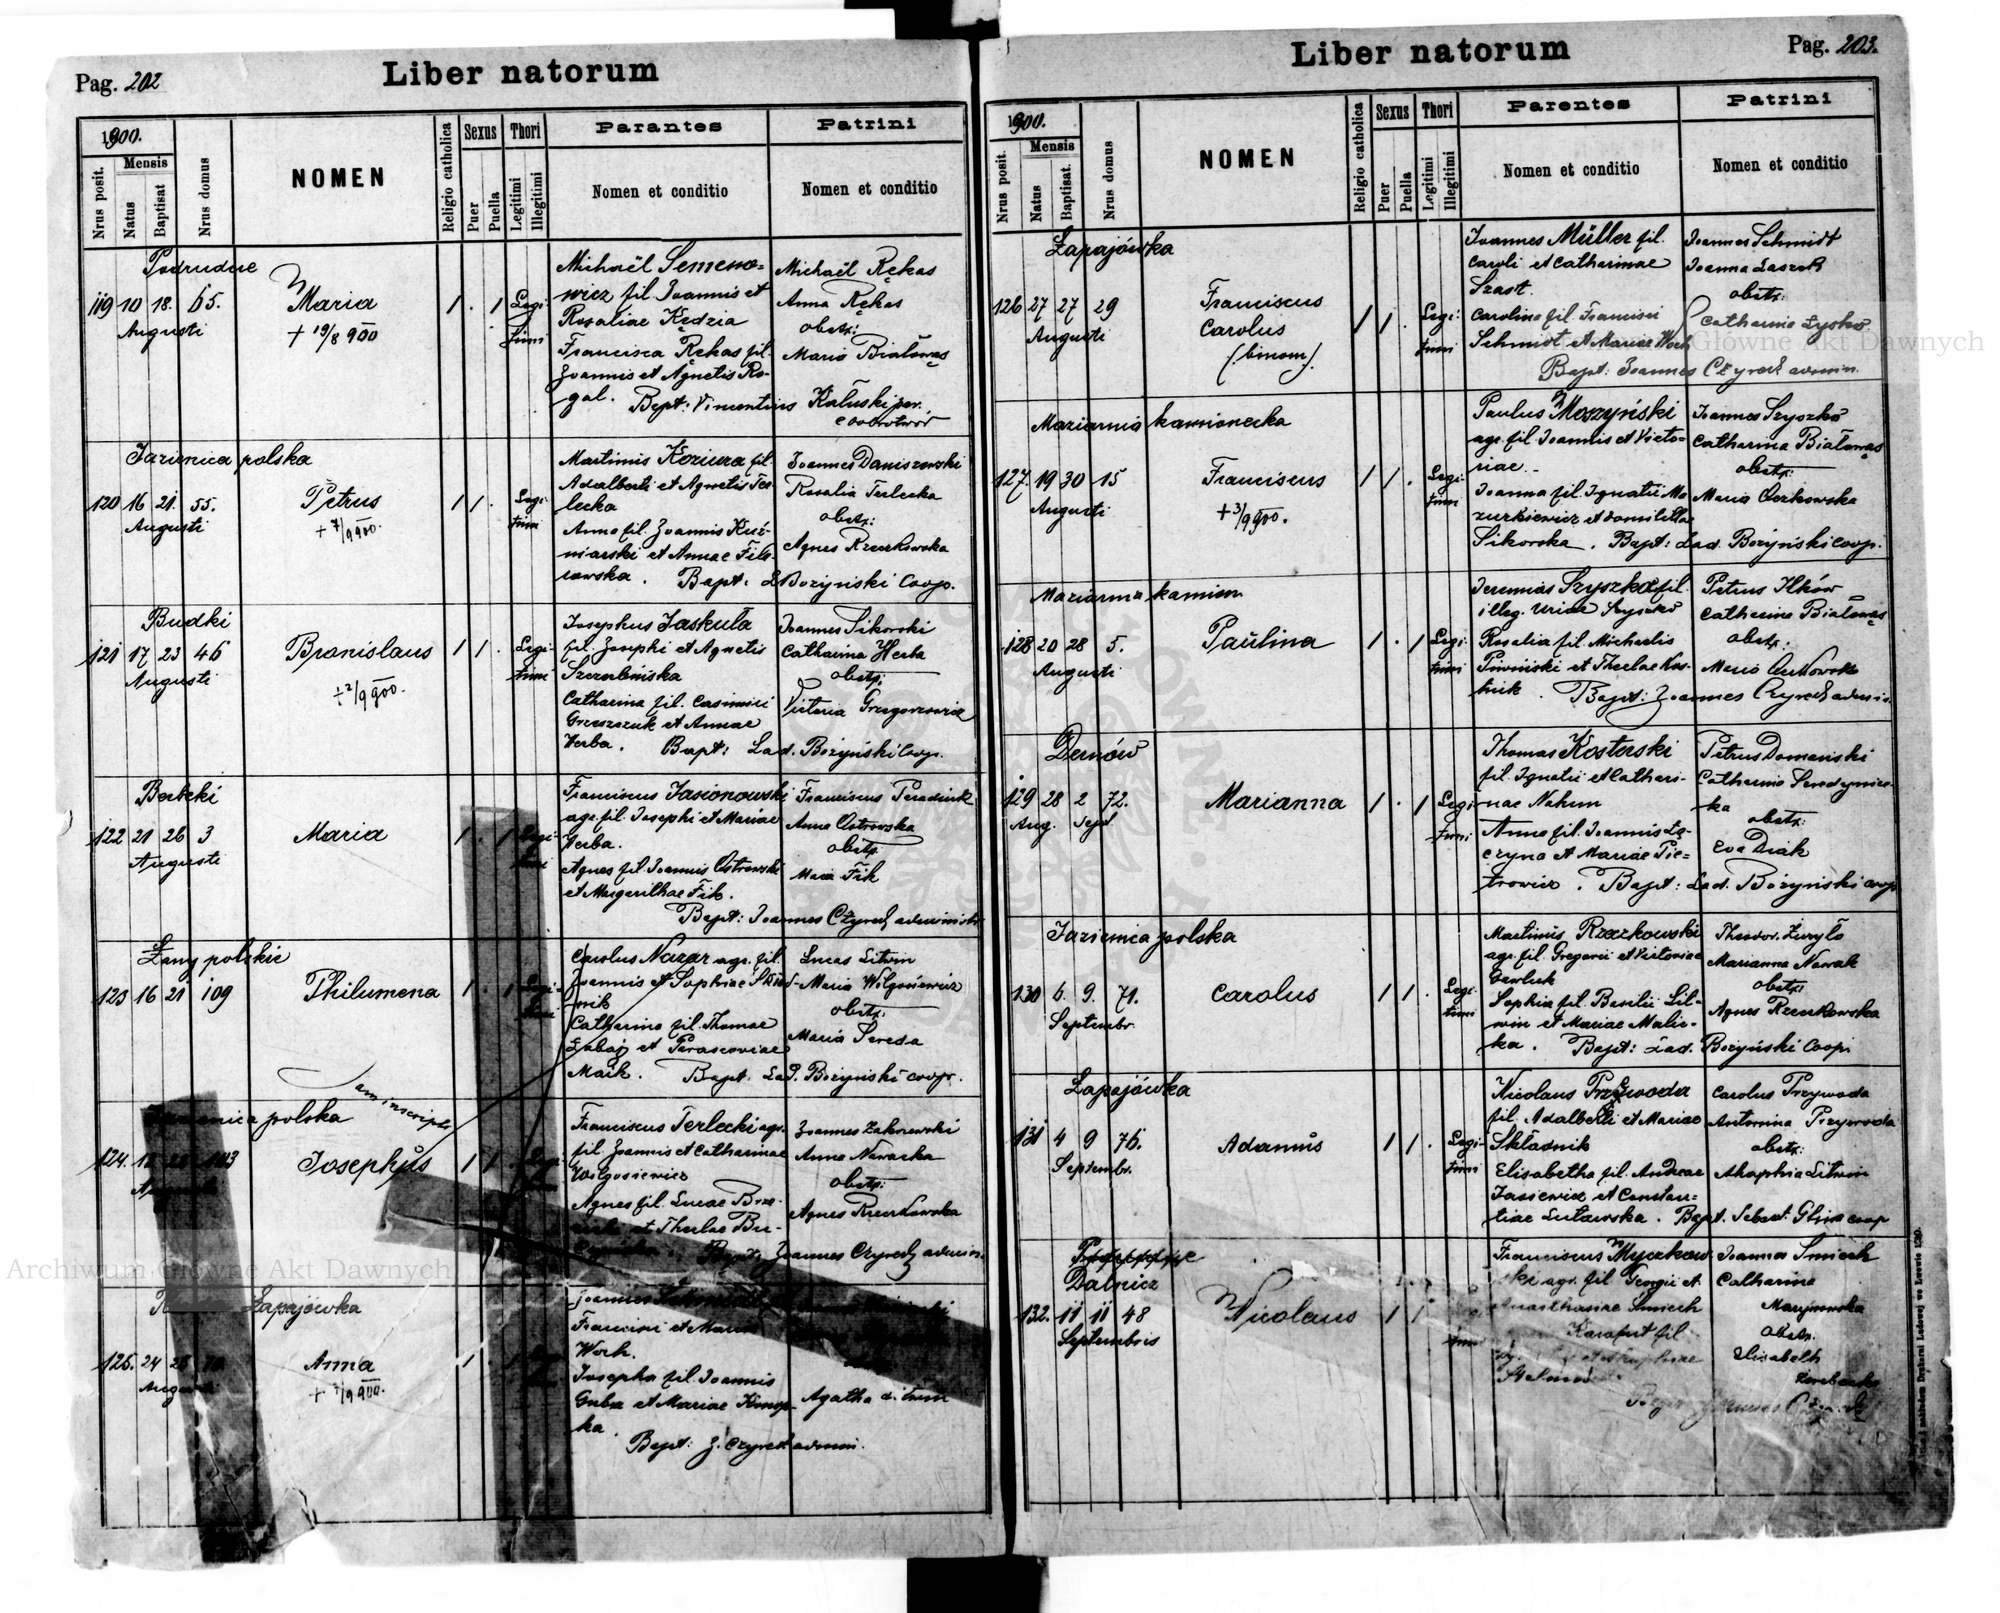 Pag. 202
Liber natorum
1900.
Nrus posit.
Mensis
Natus
Baptisat
Nrus domus
NOMEN
Religio catholica
Sexus
Puer
Puella
Thori
Legitimi
Illegitimi
Parantes
Nomen et conditio
Patrini
Nomen et conditio
Podrudne
119 10 18. 65.
Augusti
Maria
+ 19/8 900
1 . 1 Legi-
timi
Michaël Semeno-
wicz fil. Joannis et
Rosaliae Kędzia
Francisca Rękas fil.
Joannis et Agnetis Ro-
gal. Bapt: Vincentius Kałuski
Michaël Rękas
Anna Rękas
obstr:
Maria Białowąs
Jazienica polska
120 16 21. 55.
Augusti
Petrus
+ 7/9 900.
1 1 . Legi-
timi
Martinus Koziura fil.
Adalberti et Agnetis Ter-
lecka
Anna fil. Joannis Kuź-
niarski et Annae Fili-
Bapt. L. Bożyński Coop.
Joannes Daniszewski
Rosalia Terlecka
obstr:
Agnes Rzeczkowska
Budki
121 17 23 46
Augusti
Bronislaus
+ 2/9 900.
1 1 . Legi-
timi
Josephus Jaskuła
fil. Josephi et Agnetis
Catharina fil. Casimiri
Greszczuk et Annae
Herba. Bapt: Lad. Bożyński Coop.
Joannes Sikorski
Catharina Herba
obstr:
Victoria Grzegorzewicz
Berbeki
122 21 26 3
Augusti
Maria
1 . 1 Legi-
timi
Franciscus Jasionowski
agr. fil. Josephi et Mariae
Herba.
Agnes fil. Joannis Ostrowski
et Margarithae Fik.
Bapt: Joannes Czyrek administr.
Franciscus
Anna Ostrowska
obstr.
Maria Fik
Łany polskie
123 16 21 109
Philumena
1 . 1 Legi-
timi
Carolus Nazar agr. fil.
Joannis et Sophiae Skład-
nik
Catharina fil. Thomae
et Parasceviae
Maik. Bapt. Lad. Bożyński coop.
Lucas Litwin
Maria Wilgosiewicz
obstr:
Maria Sereda
Jam inscripta
Jazienica polska
124. 18 28 103
Augusti
Josephus
1 1 . Legi-
timi
Franciscus Terlecki agr.
fil. Joannis et Catharinae
Wilgosiewicz
Agnes fil. Lucae
et Theclae
Bapt: Joannes Czyrek admin.
Joannes Zakrzewski
Anna Nawacka
obstr:
Agnes Rzeczkowska
Łapajówka
125. 24 28
Augusti
Anna
+ 7/9 900.
1 . 1
Joannes
Francisci et Mariae
Woch.
Josepha fil. Joannis
Guba et Mariae Konop-
ka
Bapt: J. Czyrek admin.
Agatha Litwin
Pag. 203.
Liber natorum
1900.
Nrus posit.
Mensis
Natus
Baptisat.
Nrus domus
NOMEN
Religio catholica
Sexus
Puer
Puella
Thori
Legitimi
Illegitimi
Parentes
Nomen et conditio
Patrini
Nomen et conditio
Łapajówka
126 27 27 29
Augusti
Franciscus
Carolus
(binom).
1 1 . Legi-
timi
Joannes Müller fil.
Caroli et Catharinae
Szast.
Carolina fil. Francisci
Schmidt et Mariae Woch
Bapt: Joannes Czyrek admin.
Joannes Schmidt
Joanna Laszek
obstr:
Catharina Łysko
Maziarnia kamionecka
127. 19 30 15
Augusti
Franciscus
+ 3/9 900.
1 1 . Legi-
timi
Paulus Moszyński
agr. fil. Joannis et Victo-
riae.-
Joanna fil. Ignatii Ma-
zurkiewicz et Domitillae
Sikorska. Bapt: Lad. Bożyński coop.
Joannes Szyszko
Catharina Białowąs
obstr:
Maria Cerkowska
Maziarnia kamion
128 20 28 5.
Augusti
Paulina
1 . 1 Legi-
timi
Jeremias Szyszka fil.
illeg. Uriae Szyszko
Rosalia fil. Michaelis
Piwiński et Theclae Kos-
tiuk. Bapt: Joannes Czyrek admin.
Petrus Ilków
Catharina Białowąs
obstr:
Maria Cerkowska
Dernów
129 28 2 72.
Aug. Sept.
Marianna
1 . 1 Legi-
timi
Thomas Kosterski
fil. Ignatii et Cathari-
nae Nahum
Anna fil. Joannis Łę-
czyna et Mariae Pie-
trowicz. Bapt: Lad. Bożyński coop
Petrus Domański
Catharina Smdynic-
ka
obstr:
Eva Drak
Jazienica polska
130 6. 9. 71.
Septembr.
Carolus
1 1 . Legi-
timi
Martinus Rzeczkowski
agr. fil. Gregorii et Victoriae
Gawluk
Sophia fil. Basilii Lit-
win et Mariae Malic-
ka. Bapt: Lad. Bożyński Coop.
Theodor. Żuryło
Marianna Nowak
obstr:
Agnes Rzeczkowska
Łapajówka
131 4 9 76.
Septembr.
Adamus
1 1 . Legi-
timi
Nicolaus Przywoda
fil. Adalberti et Mariae
Składnik
Elisabetha fil. Andreae
Jasiewicz et Constan-
tiae Lutawska. Bapt. Sebast. Glina coop
Carolus Przywoda
Antonina Przywoda
obstr:
Ahaphia Litwin
Batiacz
132. 11 11 48
Septembris
Nicolaus
1 1
Franciscus Myczkow-
ski agr. fil Georgii et
Anasthasiae Smiech
Karaput fil.
Joannes Smiech
Catharina
Maryniwska
Obstr.
Elisabeth
Bapt: Joannes Czyrek